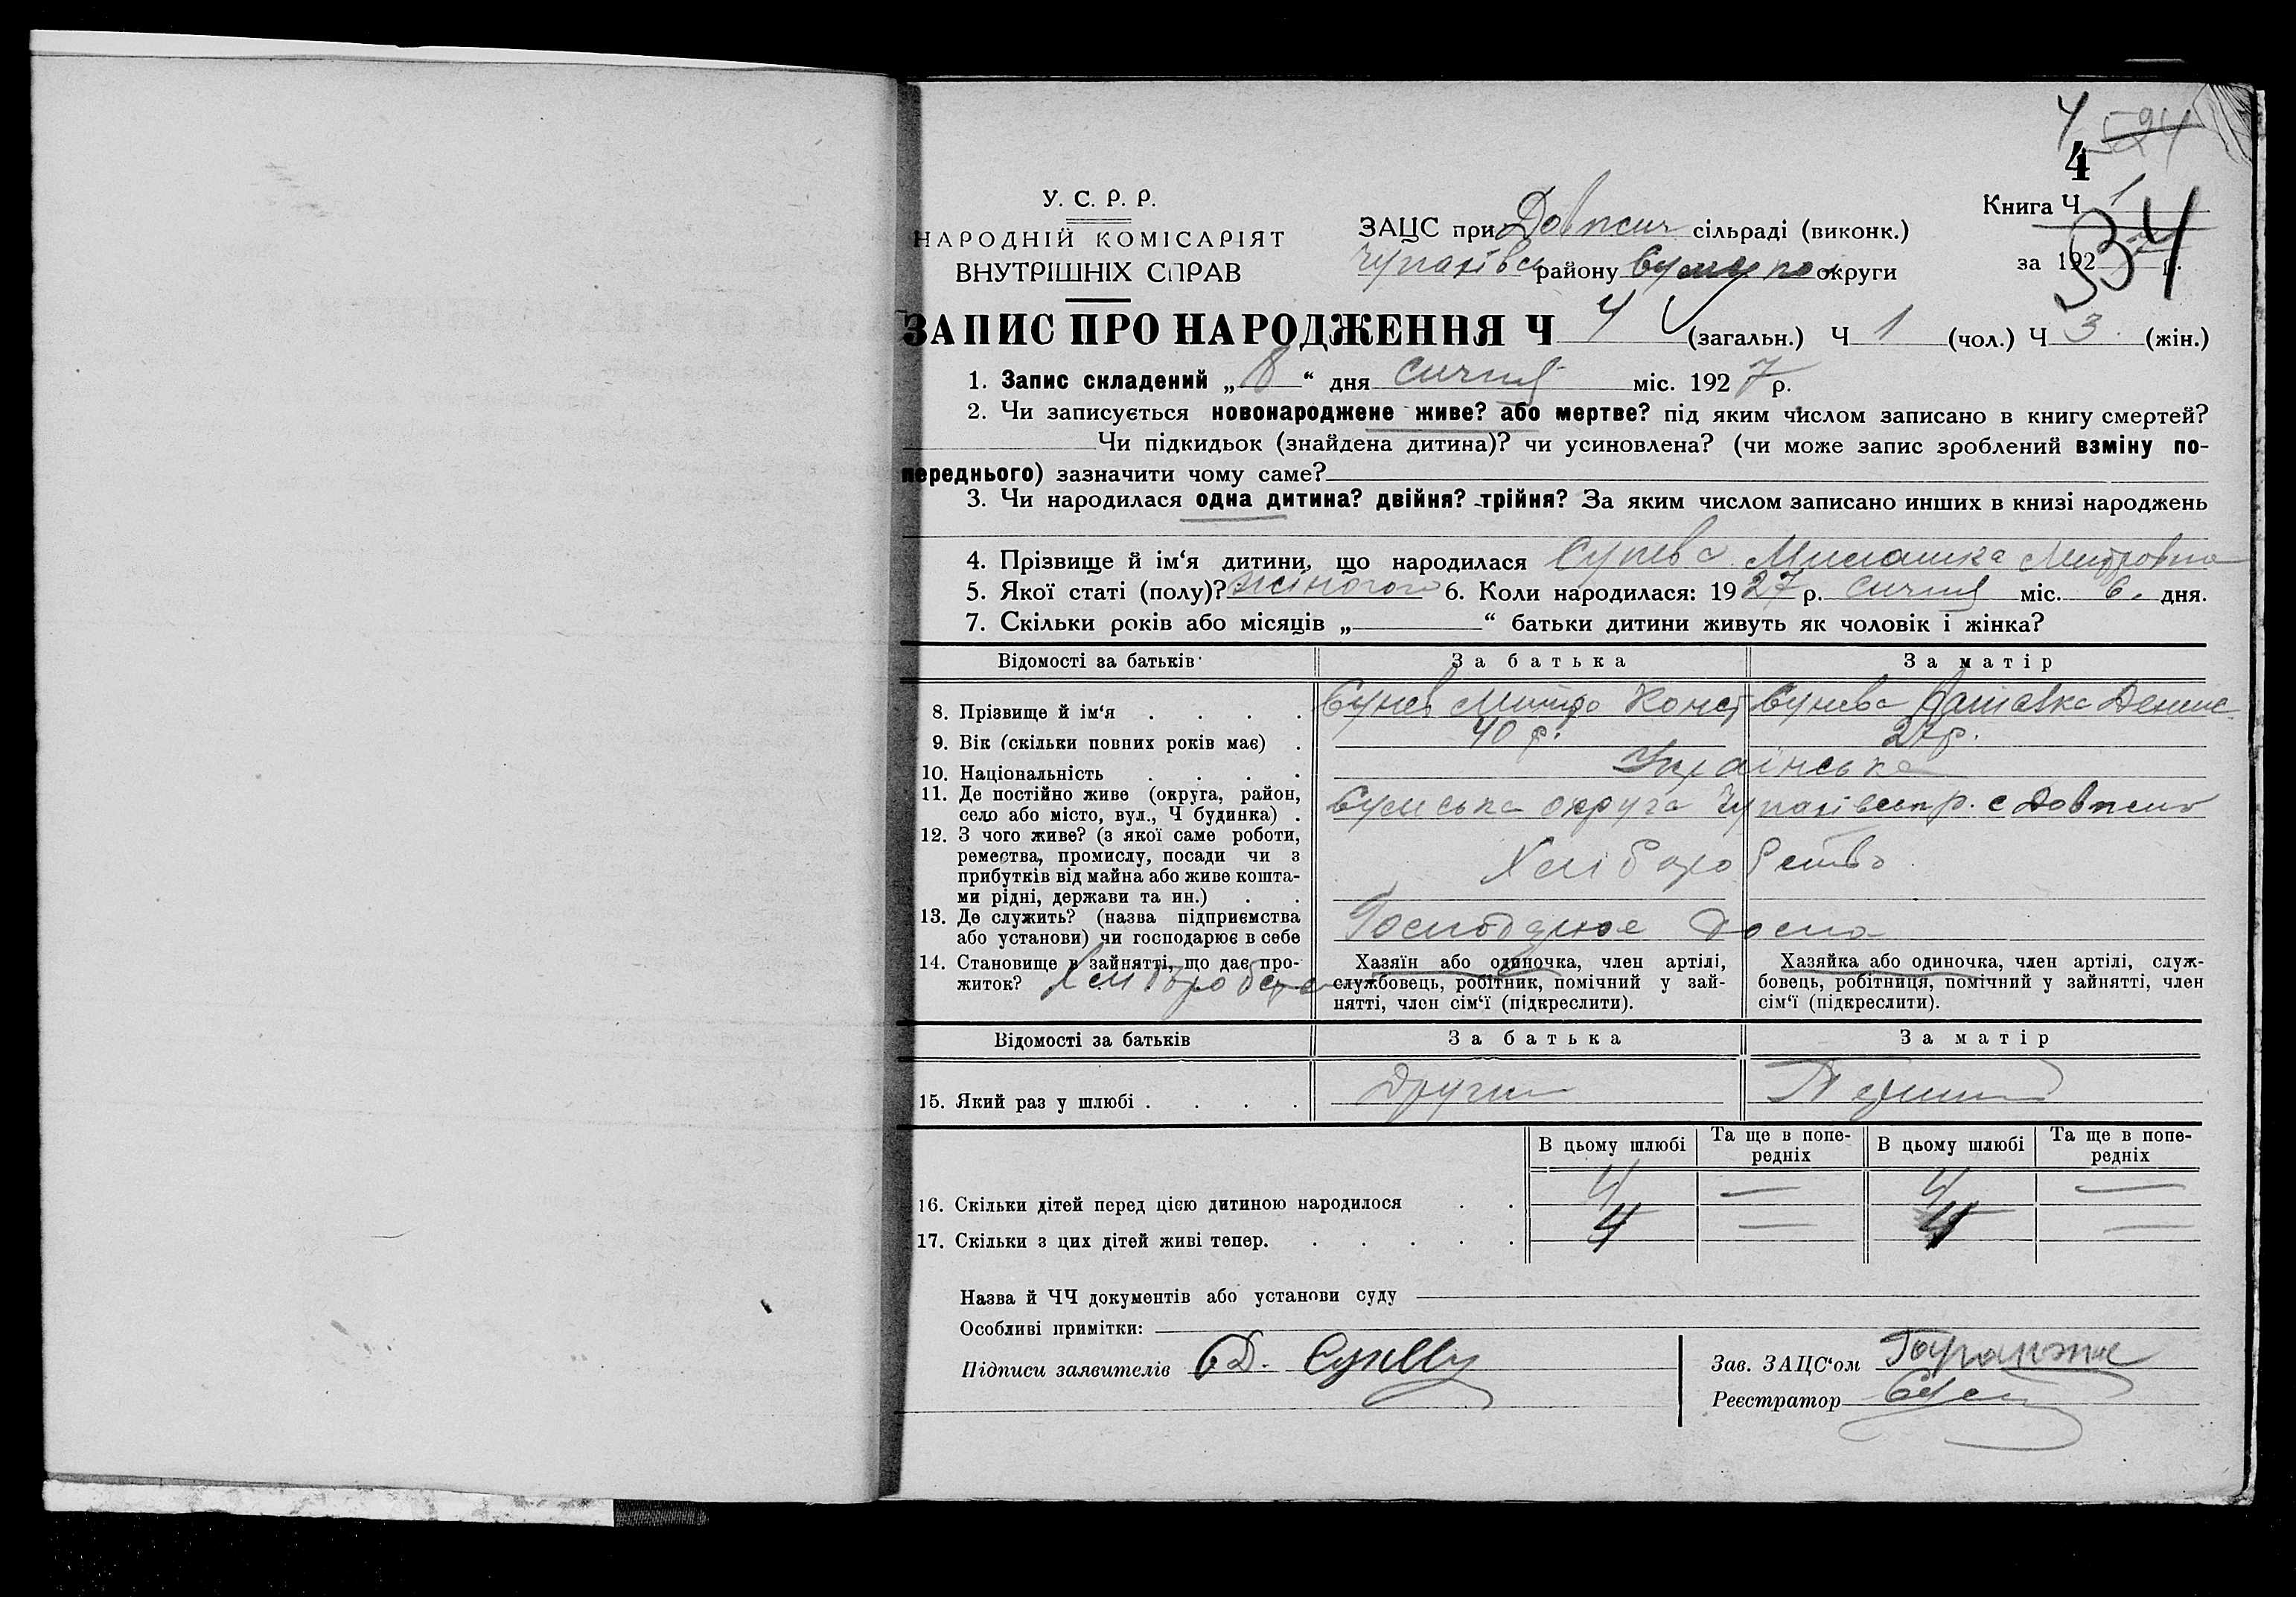 4 594
4
У. С. Р. Р.
НАРОДНІЙ КОМІСАРІЯТ
ВНУТРІШНІХ СПРАВ
ЗАЦС при сільраді (виконк.)
району округи
Книга Ч 1
за 192 р.
534
ЗАПИС ПРО НАРОДЖЕННЯ Ч 4 (загальн.) Ч 1 (чол.) Ч 3 (жін.)
1. Запис складений „ 8 “ дня січня міс. 1927 р.
2. Чи записується новонароджене живе? або мертве? під яким числом записано в книгу смертей?
Чи підкидьок (знайдена дитина)? чи усиновлена? (чи може запис зроблений взміну по-
переднього) зазначити чому саме?
3. Чи народилася одна дитина? двійня? трійня? За яким числом записано инших в книзі народжень
4. Прізвище й ім‘я дитини, що народилася
5. Якої статі (полу)? жіночого 6. Коли народилася: 1927 р. січня міс. 6. дня.
7. Скільки років або місяців „ “ батьки дитини живуть як чоловік і жінка?
Відомості за батьків За батька За матір
8. Прізвище й ім‘я
9. Вік (скільки повних років має) 40 р. 27 р.
10. Національність Українська
11. Де постійно живе (округа, район,
село або місто, вул., Ч будинка) Сумська округа
12. З чого живе? (з якої саме роботи,
ремества, промислу, посади чи з
прибутків від майна або живе кошта-
ми рідні, держави та ин.) Хліборобство
13. Де служить? (назва підприємства
або установи) чи господарює в себе Господарює дома
14. Становище в зайнятті, що дає про-
житок? Хліборобство
Хазяїн або одиночка, член артілі,
службовець, робітник, помічний у зай-
нятті, член сім‘ї (підкреслити).
Хазяйка або одиночка, член артілі, служ-
бовець, робітниця, помічний у зайнятті, член
сім‘ї (підкреслити).
Відомості за батьків За батька За матір
15. Який раз у шлюбі
В цьому шлюбі Та ще в попе-
редніх В цьому шлюбі Та ще в попе-
редніх
16. Скільки дітей перед цією дитиною народилося 4 — 4 —
17. Скільки з цих дітей живі тепер. 4 — 4 —
Назва й ЧЧ документів або установи суду
Особливі примітки:
Підписи заявителів
Зав. ЗАЦС‘ом
Реєстратор